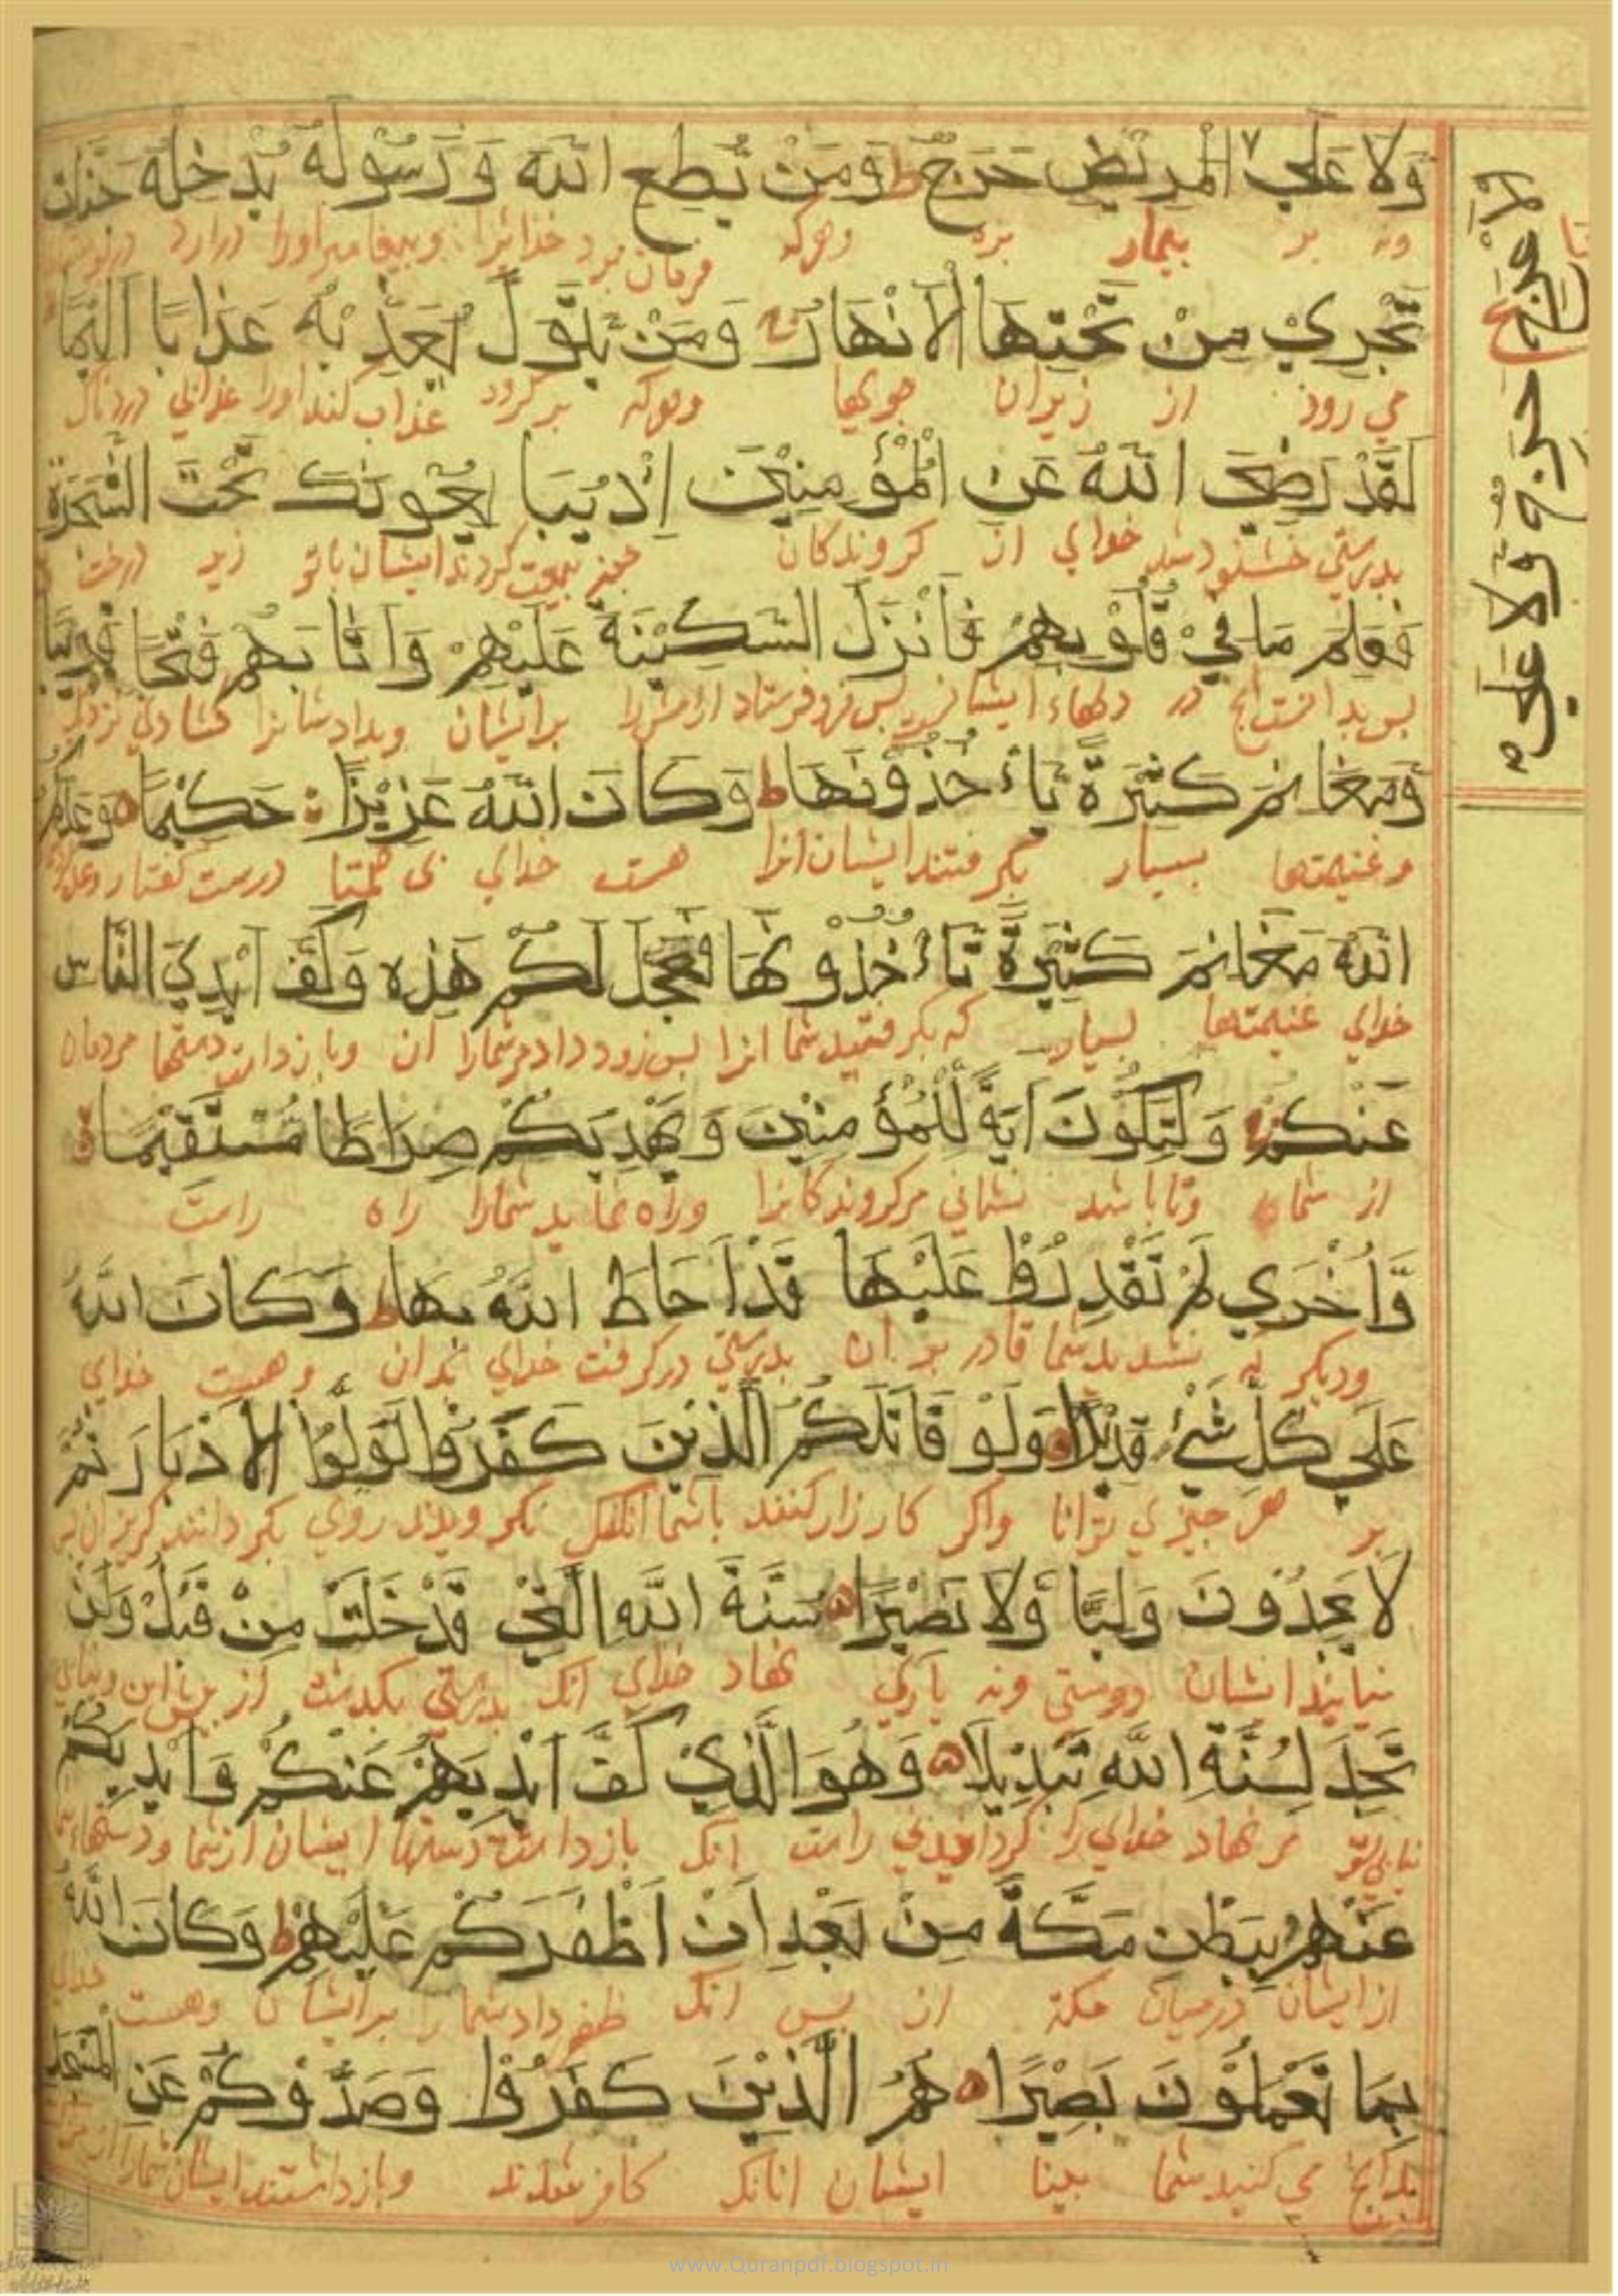 وَلَا عَلَي الْمَرِيْضِ حَرَجٌ ط وَمَنْ يُطِعِ اللّٰهَ وَرَسُوْلَهُ يُدْخِلْهُ جَنَّاتٍ
ونه بر بيمار بزه وهركه فرمان برد خدايرا وپيغامبر اورا درارد
تَجْرِيْ مِنْ تَحْتِهَا الْاَنْهَارُ وَمَنْ يَتَوَلَّ يُعَذِّبْهُ عَذَابًا اَلِيْمًا
مي رود از زيران جويها وهركه بر كردد عذاب كند اورا عذابي دردناك
لَقَدْ رَضِيَ اللّٰهُ عَنِ الْمُؤْمِنِيْنَ اِذْ يُبَايِعُوْنَكَ تَحْتَ الشَّجَرَةِ
بدرستي خشنود شد خداي از كروندكان چون بيعت كردند ايشان باتو زير درخت
فَعَلِمَ مَا فِيْ قُلُوْبِهِمْ فَاَنْزَلَ السَّكِيْنَةَ عَلَيْهِمْ وَاَثَابَهُمْ فَتْحًا قَرِيْبًا
پس بدانست انچ در دلهاء ايشان پس فرو فرستاد ارامش را برايشان وبداد شانرا كشادني نزديك
وَمَغَانِمَ كَثِيْرَةً يَاْءخُذُوْنَهَا ط وَكَانَ اللّٰهُ عَزِيْزًا حَكِيْمًا ه وَعَدَكُمُ
وغنيمتها بسيار بكرفتند ايشان انرا هست خداي بي همتا درست كفتار
اللّٰهُ مَغَانِمَ كَثِيْرَةً تَاْءخُذُوْنَهَا فَعَجَّلَ لَكُمْ هٰذِهِ وَكَفَّ اَيْدِيَ النَّاسِ
خداي غنيمتها بسيار كه بكرفتيد شما انرا پس زود داد مرشمارا ان وبازداشت دستها مردمان
عَنْكُمْ وَلِتَكُوْنَ اٰيَةً لِلْمُؤْمِنِيْنَ وَيَهْدِيَكُمْ صِرَاطًا مُسْتَقِيْمًا
از شما وتا باشد نشاني مركروندكانرا وراه نمايد شمارا راه راست
وَاُخْرٰي لَمْ تَقْدِرُوْا عَلَيْهَا قَدْ اَحَاطَ اللّٰهُ بِهَا ط وَكَانَ اللّٰهُ
وديكر نشديد شما قادر بر ان بدرستي دركرفت خداي بدان وهست خداي
عَلٰي كُلِّ شَيْءٍ قَدِيْرًا ه وَلَوْ قَاتَلَكُمُ الَّذِيْنَ كَفَرُوْا لَوَلَّوُا الْاَدْبَارَ ثُمَّ
بر هر چيزي توانا واكر كارزار كنند باشما انكس نكرويدند روي بكردانند كريزان پس
لَا يَجِدُوْنَ وَلِيًّا وَلَا نَصِيْرًا ه سُنَّةَ اللّٰهِ الَّتِيْ قَدْ خَلَتْ مِنْ قَبْلُ وَلَنْ
نيابند ايشان دوستي ونه ياري نهاد خداي انك بدرستي بكذشت از پيش اين
تَجِدَ لِسُنَّةِ اللّٰهِ تَبْدِيْلًا ه وَهُوَ الَّذِيْ كَفَّ اَيْدِيَهُمْ عَنْكُمْ وَاَيْدِيَكُمْ
نيابي تو مر نهاد خداي را كردانيدني راست انك بازداشت دستها ايشان از شما ودستهاء
عَنْهُمْ بِبَطْنِ مَكَّةَ مِنْ بَعْدِ اَنْ اَظْفَرَكُمْ عَلَيْهِمْ ط وَكَانَ اللّٰهُ
از ايشان درميان مكة از پس انك ظفر داد شمارا برايشان وهست خداي
بِمَا تَعْمَلُوْنَ بَصِيْرًا ه هُمُ الَّذِيْنَ كَفَرُوْا وَصَدُّوْكُمْ عَنِ الْمَسْجِدِ
بدانچ مي كنيد شما بينا ايشان انانك كافر شدند وبازداشتند ايشان شمارا از
الْاَعْرَجِ حَرَجٌ وَّلَا عَلَي
www.Quranpdf.blogspot.in